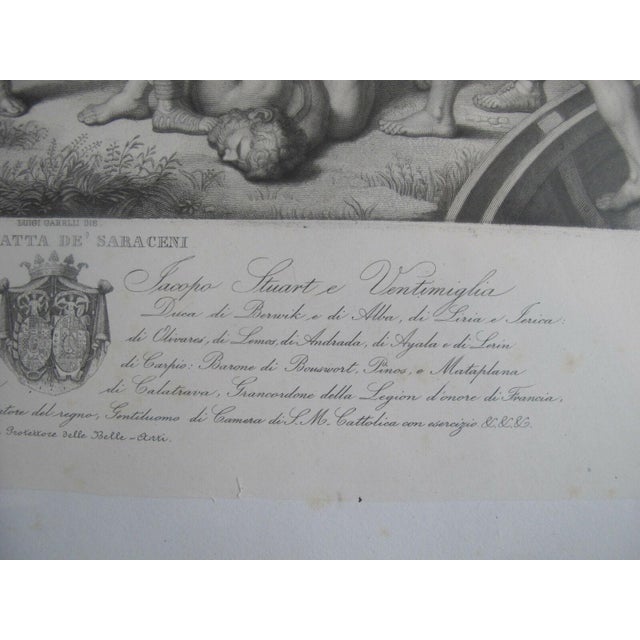 LUIGI CARELLI DIS.
ATTA DE' SARACENI
Jacopo Stuart e Ventimiglia
Duca di Berwik e di Alba, di Liria e Jerica:
di Olivares, di Lemos, di Andrada, di Ayala e di Lerin
di Carpio: Barone di Bouswort, Pinos, e Mataplana
di Calatrava, Grancordone della Legion d'onore di Francia,
atore del regno, Gentiluomo di Camera di S. M. Cattolica con esercizio &.&.&.
Protettore delle Belle-Arti.